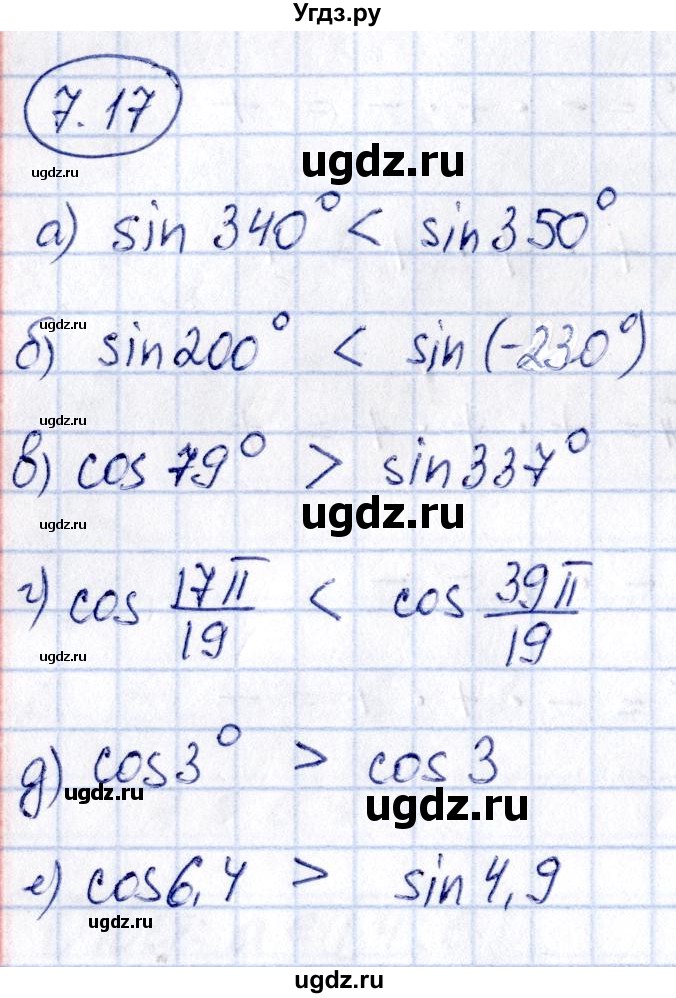 Угдз.ру
7.17
ugdz.ru
ugdz.ru
а) sin 340° < sin 350°
ugdz.ru
б) sin 200° < sin (-230°)
ugdz.ru
в) cos 79° > sin 337°
ugdz.ru
ugdz.ru
г) cos 17π/19 < cos 39π/19
ugdz.ru
д) cos 3° > cos 3
ugdz.ru
ugdz.ru
е) cos 6,4 > sin 4,9
ugdz.ru
ugdz.ru